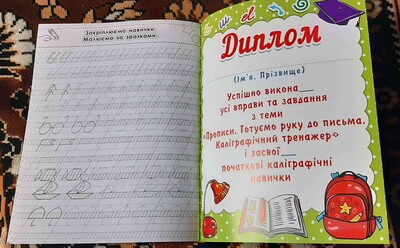 Закріплюємо навички.
Малюємо за зразками.
Диплом
(Ім'я, Прізвище)
Успішно викона___
усі вправи та завдання
з теми
«Прописи. Готуємо руку до письма.
Каліграфічний тренажер»
і засвої___
початкові каліграфічні
навички